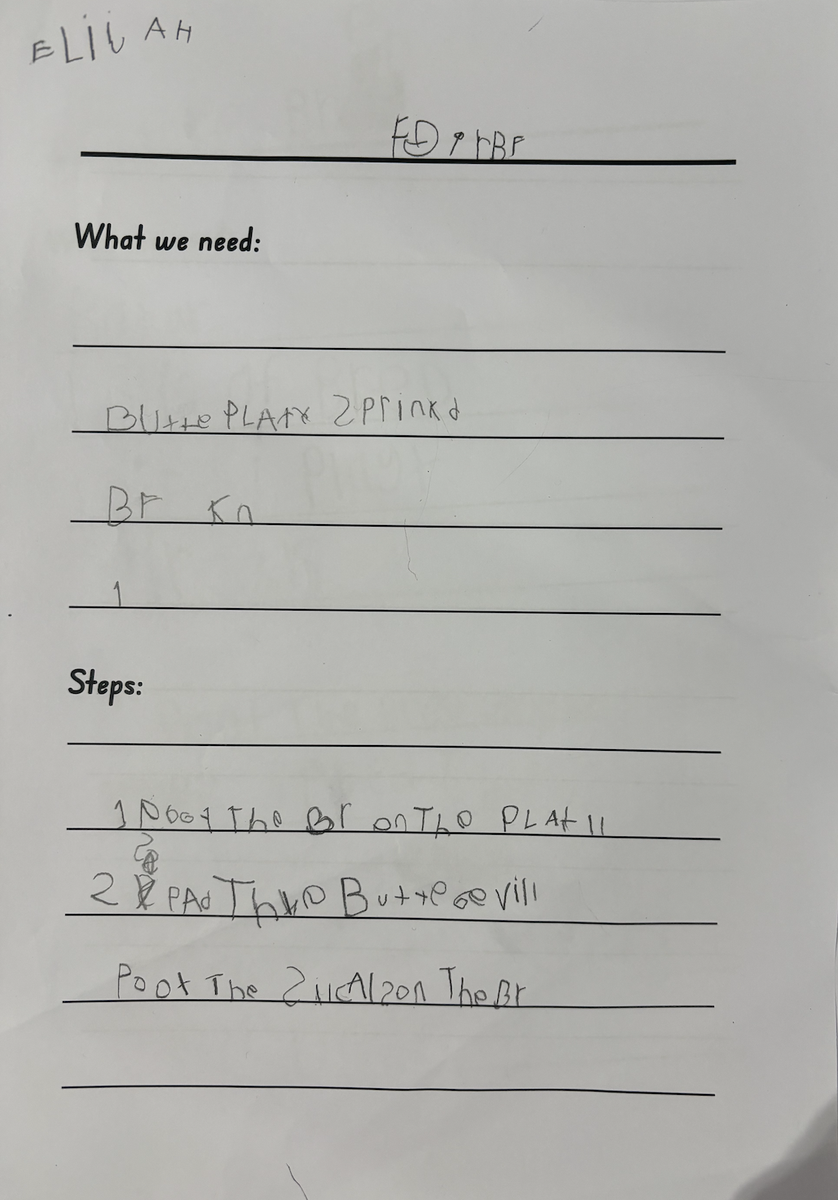 ELIJAH
What we need:
Butte PLAtx 2Prinkd
Br Kn
1
Steps:
1 Poot The Br on Tho PLAt 11
2 PAd The Butte oevill
Poot The on The Br